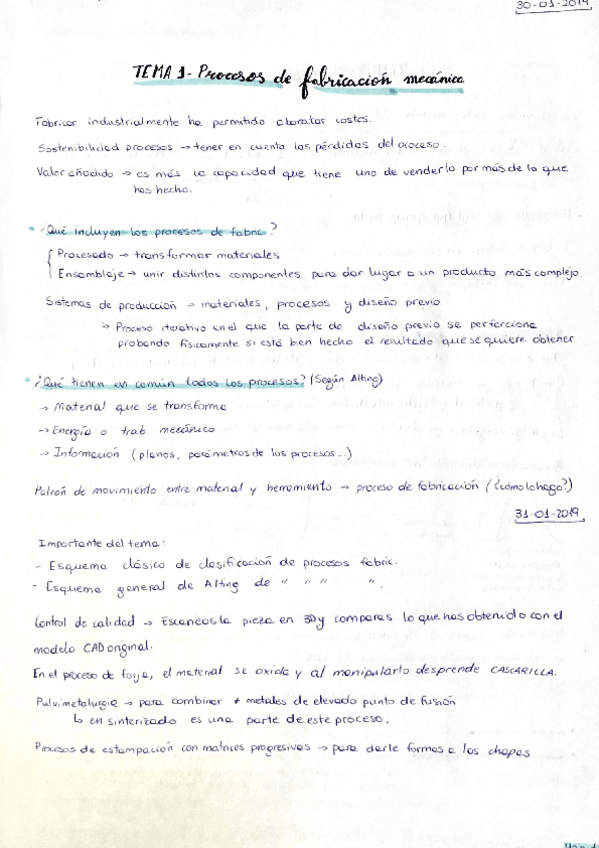 30-01-2019
TEMA 1- Procesos de fabricación mecánica
Fabricar industrialmente ha permitido abaratar costes.
Sostenibilidad procesos → tener en cuenta las pérdidas del proceso.
Valor añadido → es más la capacidad que tiene uno de venderlo por más de lo que
has hecho.
* ¿Qué incluyen los procesos de fabric?
{ Procesado → transformar materiales
Ensamblaje → unir distintos componentes para dar lugar a un producto más complejo.
Sistemas de producción → materiales, procesos y diseño previo
↳ Proceso iterativo en el que la parte de diseño previo se perfecciona
probando físicamente si está bien hecho el resultado que se quiere obtener
* ¿Qué tienen en común todos los procesos? (Según Alting)
→ Material que se transforma
→ Energía o trab. mecánico
→ Información (planos, parámetros de los procesos...)
Patrón de movimiento entre material y herramienta → proceso de fabricación (¿cómo lo hago?)
31-01-2019
Importante del tema:
- Esquema clásico de clasificación de procesos fabric.
- Esquema general de Alting de " " " ".
Control de calidad → Escaneas la pieza en 3D y comparas lo que has obtenido con el
modelo CAD original.
En el proceso de forja, el material se oxida y al manipularlo desprende CASCARILLA.
Pulvimetalurgia → para combinar ≠ metales de elevado punto de fusión
↳ en sinterizado es una parte de este proceso.
Procesos de estampación con matrices progresivas → para darle formas a las chapas